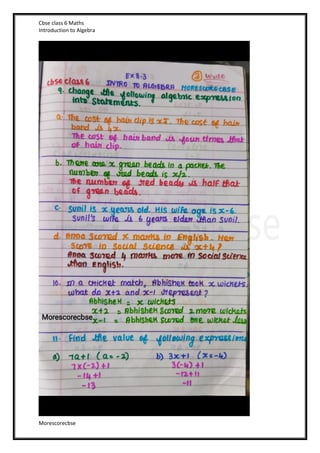 Cbse class 6 Maths
Introduction to Algebra
Ex 8.3
② Write
cbse class 6 INTRO TO ALGEBRA MORESCORECBSE
9. Change the following algebric expression
into Statements.
a. The cost of hair clip is x₹. The cost of hair
band is 4x.
The cost of hair band is four times that
of hair clip.
b. There are x green beads in a packet. The
number of red beads is x/2.
The number of red beads is half that
of green beads.
c. Sunil is x years old. His wife age is x-6.
Sunil's wife is 6 years elder than Sunil.
d. Anna Scored x marks in English. Her
Score in Social Science is x+4?
Anna scored 4 marks more in Social Science
than English.
10. In a cricket match, Abhishek took x wickets.
what do x+2 and x-1 represent?
Abhishek = x wickets
x+2 = Abhishek Scored 2 more wickets
Morescorecbse x-1 = Abhishek Scored one wicket less
11. Find the value of following expressions
a) 7a+1 (a=-2) b) 3x+1 (x=-4)
7x(-2)+1 3(-4)+1
-14+1 -12+11
-13 -11
Morescorecbse